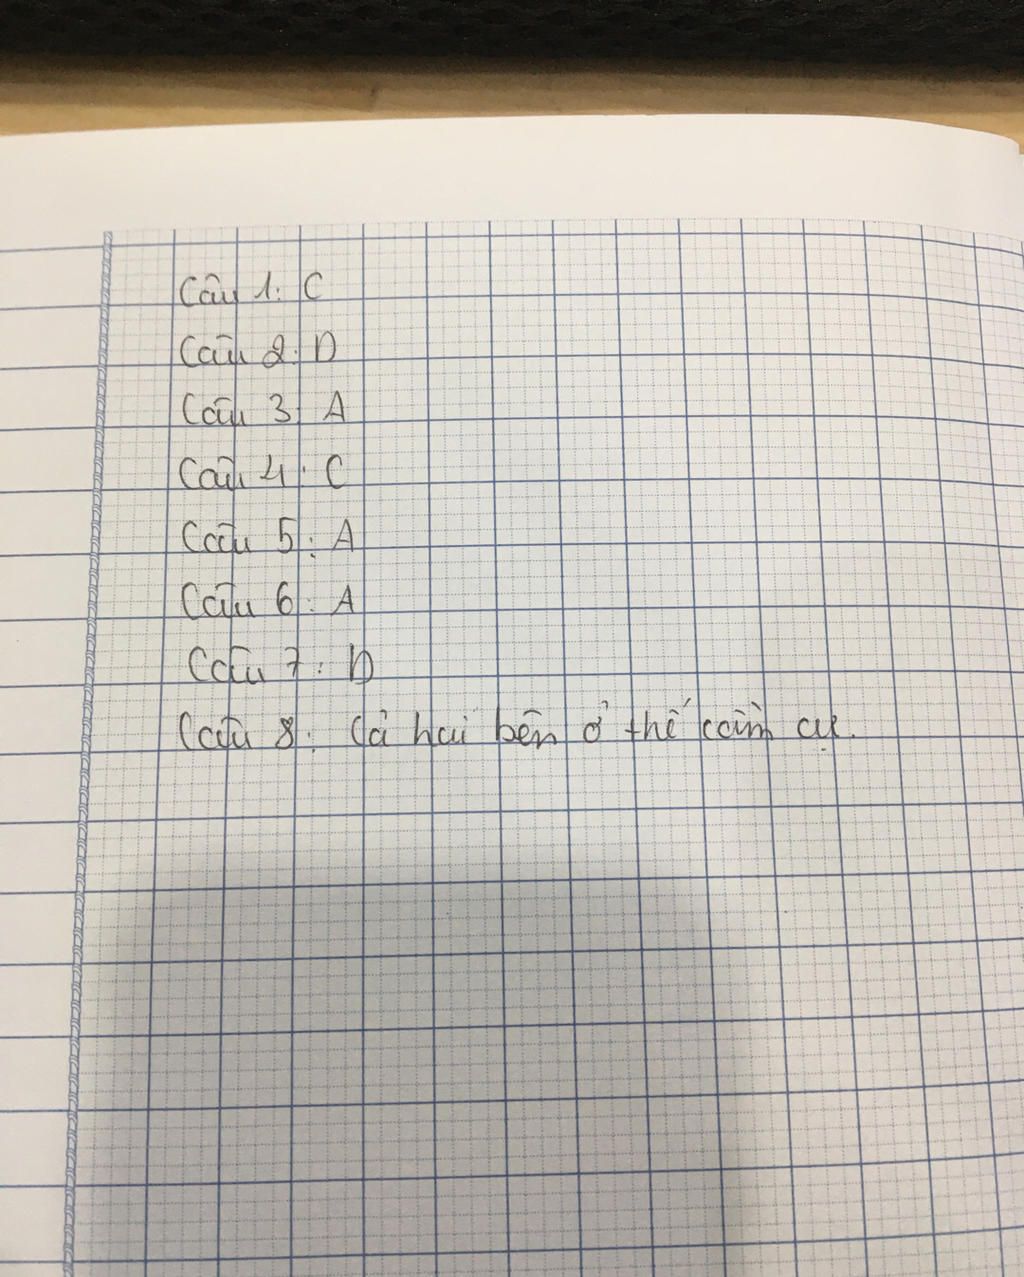 Câu 1: C
Câu 2: D
Câu 3: A
Câu 4: C
Câu 5: A
Câu 6: A
Câu 7: D
Câu 8: Cả hai bên ở thế cầm cự.